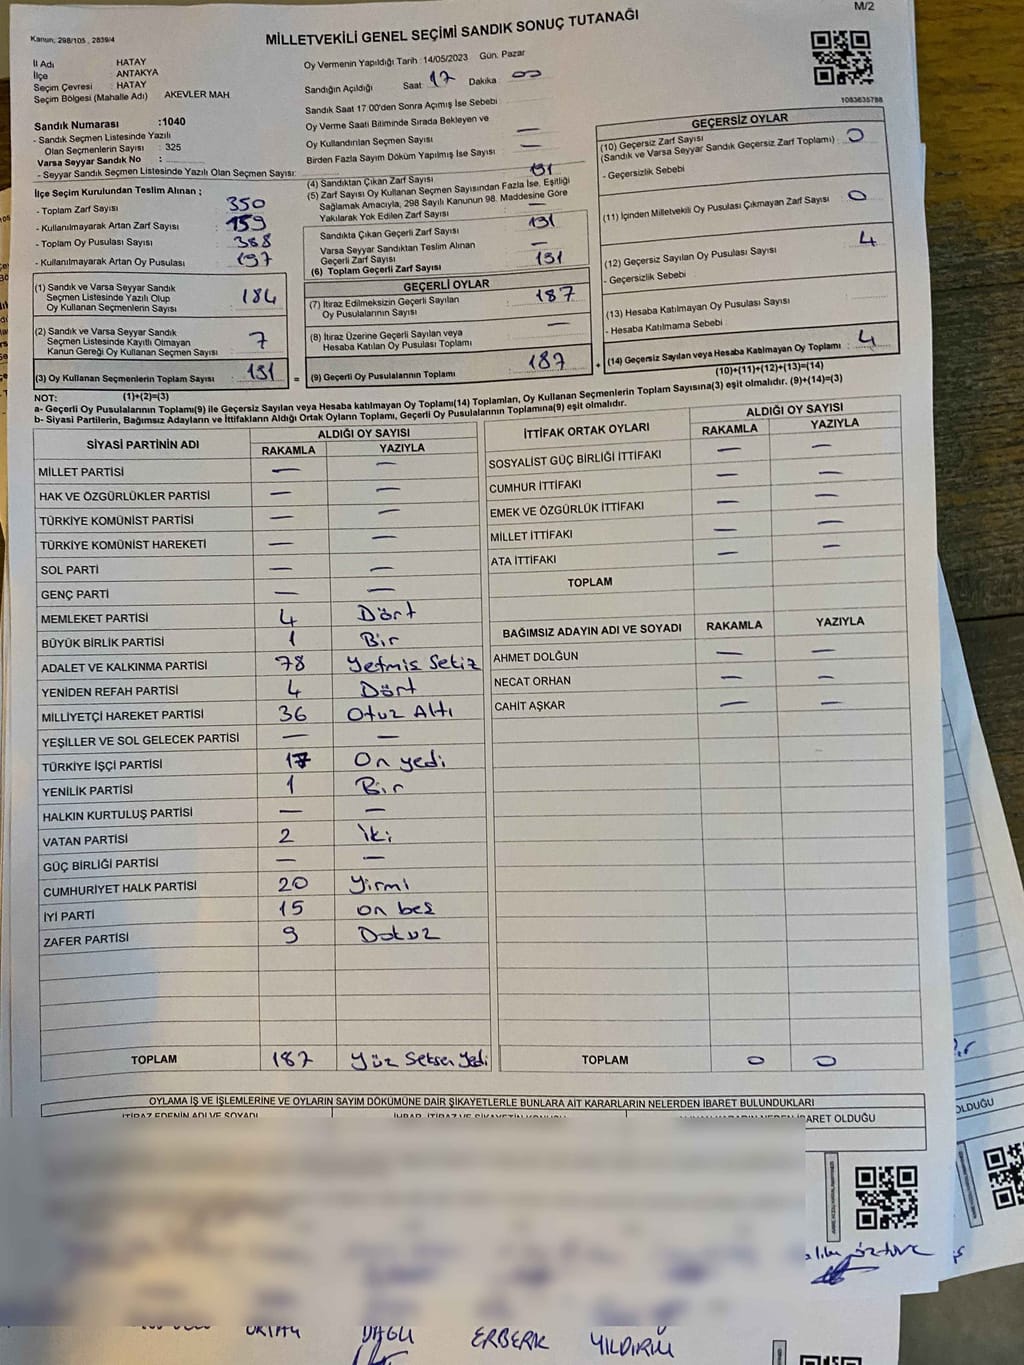 M/2
Kanun, 298/105 , 2839/4
MİLLETVEKİLİ GENEL SEÇİMİ SANDIK SONUÇ TUTANAĞI
İl Adı : HATAY
İlçe : ANTAKYA
Seçim Çevresi : HATAY
Seçim Bölgesi (Mahalle Adı) AKEVLER MAH
Oy Vermenin Yapıldığı Tarih : 14/05/2023 Gün: Pazar
Sandığın Açıldığı Saat : 17 Dakika : 00
Sandık Saat 17.00'den Sonra Açılmış İse Sebebi
Oy Verme Saati Bitiminde Sırada Bekleyen ve
Oy Kullandırılan Seçmen Sayısı —
Birden Fazla Sayım Döküm Yapılmış İse Sayısı —
1083635788
Sandık Numarası :1040
- Sandık Seçmen Listesinde Yazılı
Olan Seçmenlerin Sayısı : 325
Varsa Seyyar Sandık No :
- Seyyar Sandık Seçmen Listesinde Yazılı Olan Seçmen Sayısı:
İlçe Seçim Kurulundan Teslim Alınan ;
- Toplam Zarf Sayısı : 350
- Kullanılmayarak Artan Zarf Sayısı : 159
- Toplam Oy Pusulası Sayısı : 388
- Kullanılmayarak Artan Oy Pusulası : 197
(1) Sandık ve Varsa Seyyar Sandık
Seçmen Listesinde Yazılı Olup
Oy Kullanan Seçmenlerin Sayısı : 184
(2) Sandık ve Varsa Seyyar Sandık
Seçmen Listesinde Kayıtlı Olmayan
Kanun Gereği Oy Kullanan Seçmen Sayısı : 7
(3) Oy Kullanan Seçmenlerin Toplam Sayısı : 191
(4) Sandıktan Çıkan Zarf Sayısı 191
(5) Zarf Sayısı Oy Kullanan Seçmen Sayısından Fazla İse, Eşitliği
Sağlamak Amacıyla, 298 Sayılı Kanunun 98. Maddesine Göre
Yakılarak Yok Edilen Zarf Sayısı —
Sandıkta Çıkan Geçerli Zarf Sayısı 191
Varsa Seyyar Sandıktan Teslim Alınan
Geçerli Zarf Sayısı —
(6) Toplam Geçerli Zarf Sayısı 191
GEÇERLİ OYLAR
(7) İtiraz Edilmeksizin Geçerli Sayılan
Oy Pusulalarının Sayısı : 187
(8) İtiraz Üzerine Geçerli Sayılan veya
Hesaba Katılan Oy Pusulası Toplamı —
= (9) Geçerli Oy Pusulalarının Toplamı : 187
GEÇERSİZ OYLAR
(10) Geçersiz Zarf Sayısı
(Sandık ve Varsa Seyyar Sandık Geçersiz Zarf Toplamı) : 0
- Geçersizlik Sebebi
(11) İçinden Milletvekili Oy Pusulası Çıkmayan Zarf Sayısı : 0
(12) Geçersiz Sayılan Oy Pusulası Sayısı 4
- Geçersizlik Sebebi
(13) Hesaba Katılmayan Oy Pusulası Sayısı
- Hesaba Katılmama Sebebi
+ (14) Geçersiz Sayılan veya Hesaba Katılmayan Oy Toplamı : 4
(10)+(11)+(12)+(13)=(14)
NOT: (1)+(2)=(3)
a- Geçerli Oy Pusulalarının Toplamı(9) ile Geçersiz Sayılan veya Hesaba katılmayan Oy Toplamı(14) Toplamları, Oy Kullanan Seçmenlerin Toplam Sayısına(3) eşit olmalıdır. (9)+(14)=(3)
b- Siyasi Partilerin, Bağımsız Adayların ve İttifakların Aldığı Ortak Oyların Toplamı, Geçerli Oy Pusulalarının Toplamına(9) eşit olmalıdır.
SİYASİ PARTİNİN ADI ALDIĞI OY SAYISI
RAKAMLA YAZIYLA
MİLLET PARTİSİ — —
HAK VE ÖZGÜRLÜKLER PARTİSİ — —
TÜRKİYE KOMÜNİST PARTİSİ — —
TÜRKİYE KOMÜNİST HAREKETİ — —
SOL PARTİ — —
GENÇ PARTİ — —
MEMLEKET PARTİSİ 4 Dört
BÜYÜK BİRLİK PARTİSİ 1 Bir
ADALET VE KALKINMA PARTİSİ 78 Yetmiş Sekiz
YENİDEN REFAH PARTİSİ 4 Dört
MİLLİYETÇİ HAREKET PARTİSİ 36 Otuz Altı
YEŞİLLER VE SOL GELECEK PARTİSİ — —
TÜRKİYE İŞÇİ PARTİSİ 17 On yedi
YENİLİK PARTİSİ 1 Bir
HALKIN KURTULUŞ PARTİSİ — —
VATAN PARTİSİ 2 İki
GÜÇ BİRLİĞİ PARTİSİ — —
CUMHURİYET HALK PARTİSİ 20 Yirmi
İYİ PARTİ 15 on beş
ZAFER PARTİSİ 9 Dokuz
TOPLAM 187 Yüz Seksen Yedi
İTTİFAK ORTAK OYLARI ALDIĞI OY SAYISI
RAKAMLA YAZIYLA
SOSYALİST GÜÇ BİRLİĞİ İTTİFAKI — —
CUMHUR İTTİFAKI — —
EMEK VE ÖZGÜRLÜK İTTİFAKI — —
MİLLET İTTİFAKI — —
ATA İTTİFAKI — —
TOPLAM
BAĞIMSIZ ADAYIN ADI VE SOYADI RAKAMLA YAZIYLA
AHMET DOLĞUN — —
NECAT ORHAN — —
CAHİT AŞKAR — —
TOPLAM 0 0
OYLAMA İŞ VE İŞLEMLERİNE VE OYLARIN SAYIM DÖKÜMÜNE DAİR ŞİKAYETLERLE BUNLARA AİT KARARLARIN NELERDEN İBARET BULUNDUKLARI
İTİRAZ EDENİN ADI VE SOYADI
İBARET OLDUĞU
OLDUĞU
ERBERK YILDIRIM